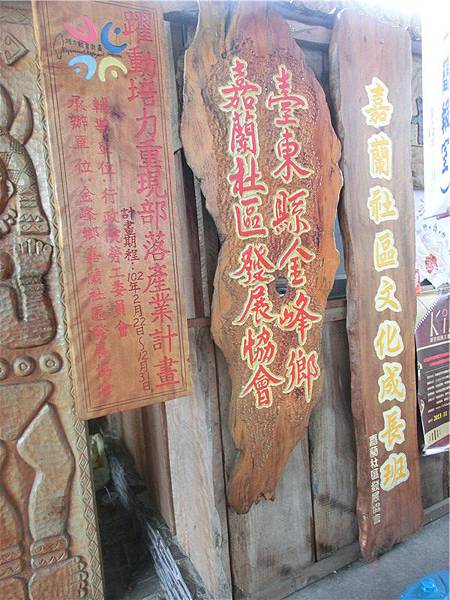 躍動培力重現部落產業計畫
計畫期程：102年2月22日～12月31日
輔導單位：行政院勞工委員會
承辦單位：金峰鄉嘉蘭社區發展協會
臺東縣金峰鄉
嘉蘭社區發展協會
嘉蘭社區文化成長班
嘉蘭社區發展協會